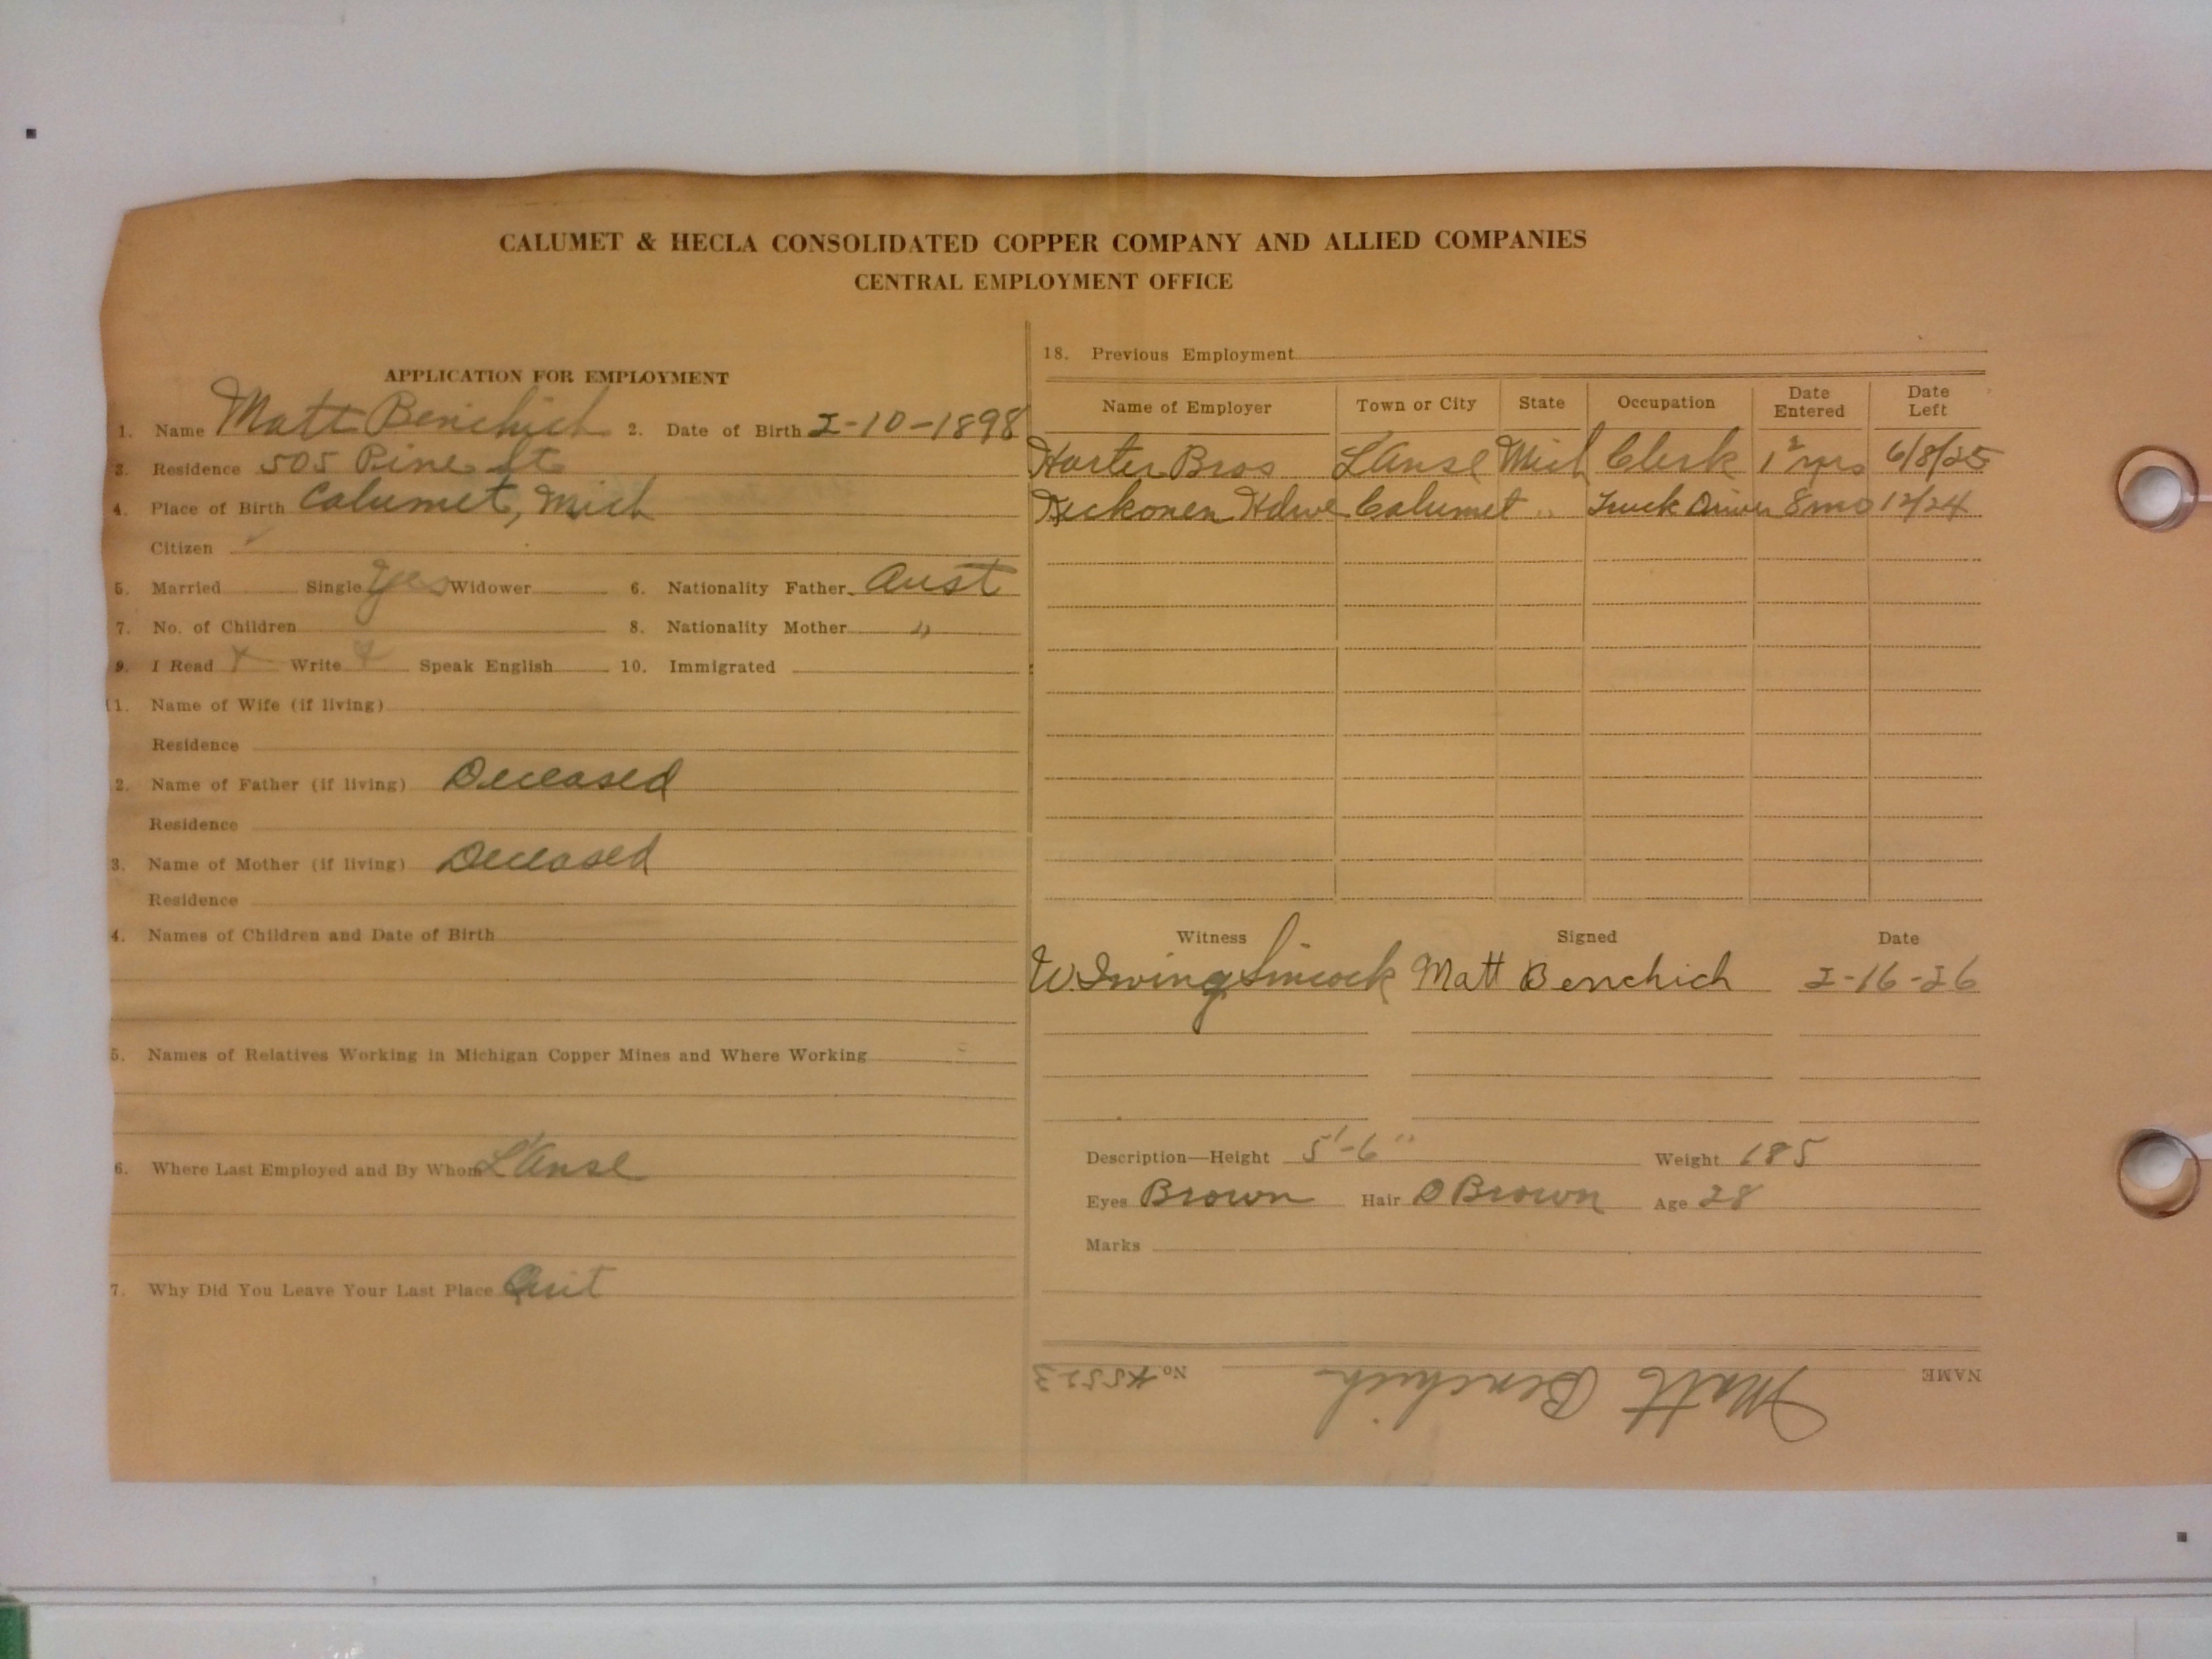 CALUMET & HECLA CONSOLIDATED COPPER COMPANY AND ALLIED COMPANIES
CENTRAL EMPLOYMENT OFFICE
APPLICATION FOR EMPLOYMENT
1. Name Matt Benchich 2. Date of Birth 2-10-1898
3. Residence 505 Pine St
4. Place of Birth Calumet, Mich
Citizen
5. Married Single Yes Widower 6. Nationality Father Aust
7. No. of Children 8. Nationality Mother "
9. I Read X Write X Speak English 10. Immigrated
11. Name of Wife (if living)
Residence
2. Name of Father (if living) Deceased
Residence
3. Name of Mother (if living) Deceased
Residence
4. Names of Children and Date of Birth
5. Names of Relatives Working in Michigan Copper Mines and Where Working
6. Where Last Employed and By Whom L'Anse
7. Why Did You Leave Your Last Place Quit
18. Previous Employment
Name of Employer Town or City State Occupation Date Entered Date Left
Bros L'Anse Mich Clerk 6/8/25
Hdwe Calumet " Truck Driver 8 mo 12/24
Witness Signed Date
W. Irving Sincock Matt Benchich 2-16-26
Description—Height 5'-6" Weight 185
Eyes Brown Hair D Brown Age 28
Marks
NAME Matt Benchich No.